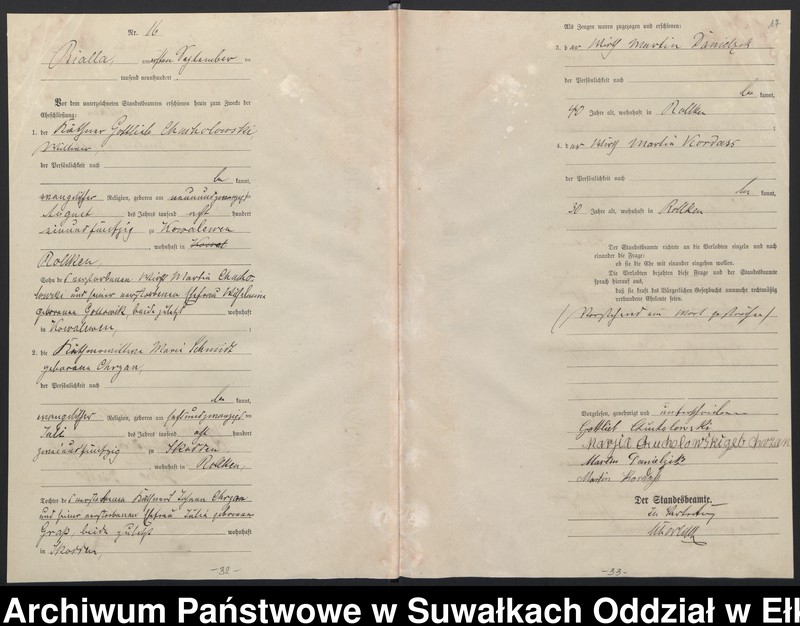 Nr. 16
Bialla, am elften September ein
tausend neunhundert
Vor dem unterzeichneten Standesbeamten erschienen heute zum Zwecke der
Eheschließung:
1. der Käthner Gottlieb Chucholowski,
Wittwer
der Persönlichkeit nach
be kannt,
evangelischer Religion, geboren am neunundzwanzigsten
August des Jahres tausend acht hundert
einundfünfzig zu Kowalewen
, wohnhaft in Kowal
Rollken,
Sohn des verstorbenen Wirth Martin Chucho-
lowski und seiner verstorbenen Ehefrau Wilhelmine
geborenen, beide zuletzt wohnhaft
in Kowalewen,
2. die Käthnerwittwe Marie Schmidt
geborene Chrzan,
der Persönlichkeit nach
be kannt,
evangelischer Religion, geboren am sechsundzwanzigsten
Juli des Jahres tausend acht hundert
zweiundfünfzig zu Skodden
, wohnhaft in Rollken,
Tochter des verstorbenen Käthners Johann Chrzan
und seiner verstorbenen Ehefrau Julie geborenen
beide zuletzt wohnhaft
in Skodden,
- 32 -
17
Als Zeugen waren zugezogen und erschienen:
3. der Wirth Martin Danielzik
der Persönlichkeit nach
be kannt,
40 Jahre alt, wohnhaft in Rollken
4. der Wirth Martin Kordass
der Persönlichkeit nach
be kannt,
30 Jahre alt, wohnhaft in Rollken
Der Standesbeamte richtete an die Verlobten einzeln und nach
einander die Frage:
ob sie die Ehe mit einander eingehen wollen.
Die Verlobten bejahten diese Frage und der Standesbeamte
sprach hierauf aus,
daß sie kraft des Bürgerlichen Gesetzbuchs nunmehr rechtmäßig
verbundene Eheleute seien.
(Vorstehend ein Wort gestrichen)
Vorgelesen, genehmigt und unterschrieben
Gottlieb Chucholowski
Maryia Chucholowski geb Chrzan
Martin Danielzik
Martin Kordaß
Der Standesbeamte.
In Vertretung
- 33 -
Archiwum Państwowe w Suwałkach Oddział w Ełk